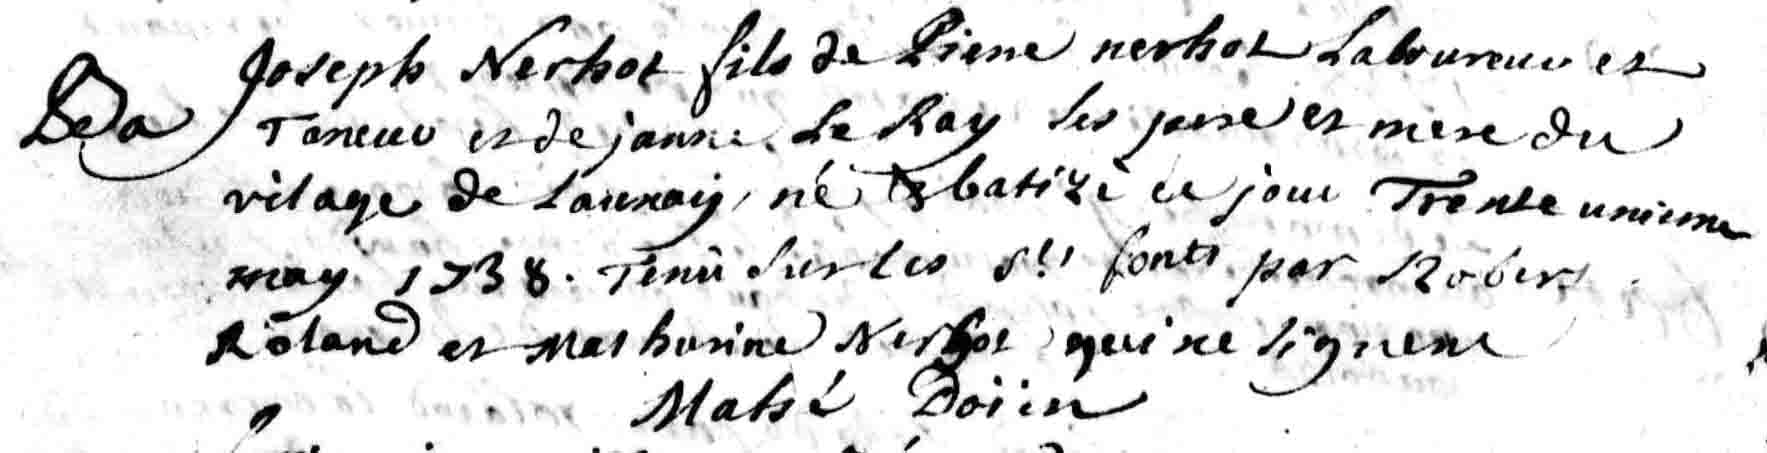 Joseph Nerhot fils de Pierre nerhot Laboureur et
Taneur et de janne Le Ray ses pere et mere du
vilage de Launay, né et batizé ce jour Trente unieme
may 1738. Tenu sur les sts fonts par Robert
Roland et Mathurine Nerhot qui ne signent
Mahé Doïen